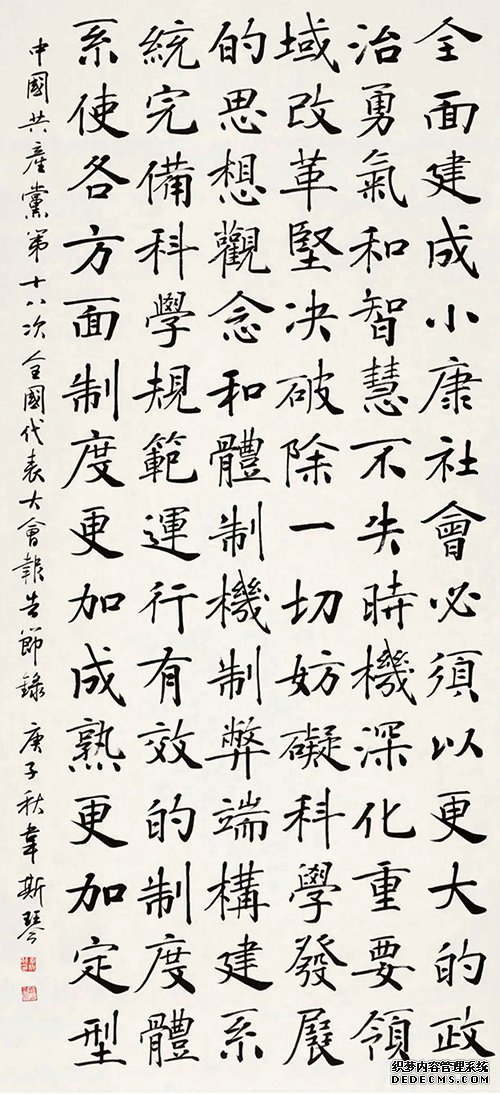 全面建成小康社會必須以更大的政
治勇氣和智慧不失時機深化重要領
域改革堅决破除一切妨礙科學發展
的思想觀念和體制機制弊端構建系
統完備科學規範運行有效的制度體
系使各方面制度更加成熟更加定型
中國共産黨第十八次全國代表大會報告節錄 庚子秋韋斯琴
织梦内容管理系统
DEDECMS.COM